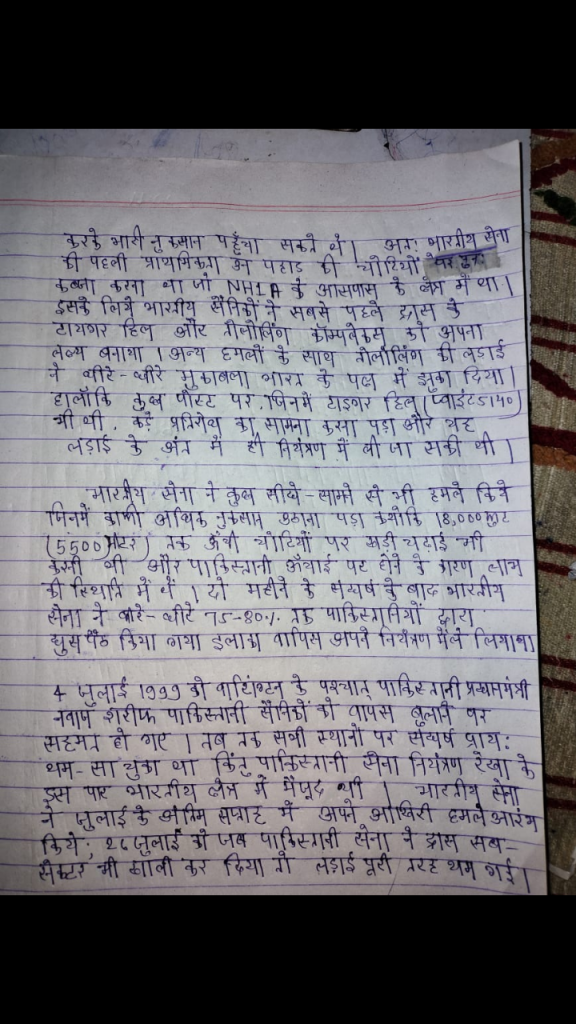 करके भारी नुकसान पहुँचा सकते थे। अतः भारतीय सेना
की पहली प्राथमिकता उन पहाड़ की चोटियों पर
कब्जा करना था जो NH1A के आसपास के क्षेत्र में था।
इसके लिये भारतीय सैनिकों ने सबसे पहले द्रास के
टायगर हिल और तोलोलिंग कॉम्पलेक्स को अपना
लक्ष्य बनाया। अन्य हमलों के साथ तोलोलिंग की लड़ाई
ने धीरे-धीरे मुकाबला भारत के पक्ष में झुका दिया।
हालाँकि कुछ पोस्ट पर, जिनमें टाइगर हिल (प्वाईंट 5140)
भी थी, कड़े प्रतिरोध का सामना करना पड़ा और यह
लड़ाई के अंत में ही नियंत्रण में ली जा सकी थी।
भारतीय सेना ने कुछ सीधे-सामने से भी हमले किये
जिनमें काफी अधिक नुकसान उठाना पड़ा क्योंकि 18,000 फुट
(5500 मीटर) तक ऊँची चोटियों पर खड़ी चढ़ाई भी
करनी थी और पाकिस्तानी ऊँचाई पर होने के कारण लाभ
की स्थिति में थे। दो महीने के संघर्ष के बाद भारतीय
सेना ने धीरे-धीरे 75-80% तक पाकिस्तानियों द्वारा
घुसपैठ किया गया इलाका वापिस अपने नियंत्रण में ले लिया था
4 जुलाई 1999 को वाशिंग्टन के पश्चात् पाकिस्तानी प्रधानमंत्री
नवाज शरीफ पाकिस्तानी सैनिकों को वापस बुलाने पर
सहमत हो गए। तब तक सभी स्थानों पर संघर्ष प्रायः
थम-सा चुका था किंतु पाकिस्तानी सेना नियंत्रण रेखा के
इस पार भारतीय क्षेत्र में मौजूद थी। भारतीय सेना
ने जुलाई के अंतिम सप्ताह में अपने आखिरी हमले आरंभ
किये; 26 जुलाई को जब पाकिस्तानी सेना ने द्रास सब-
सेक्टर भी खाली कर दिया तो लड़ाई पूरी तरह थम गई।